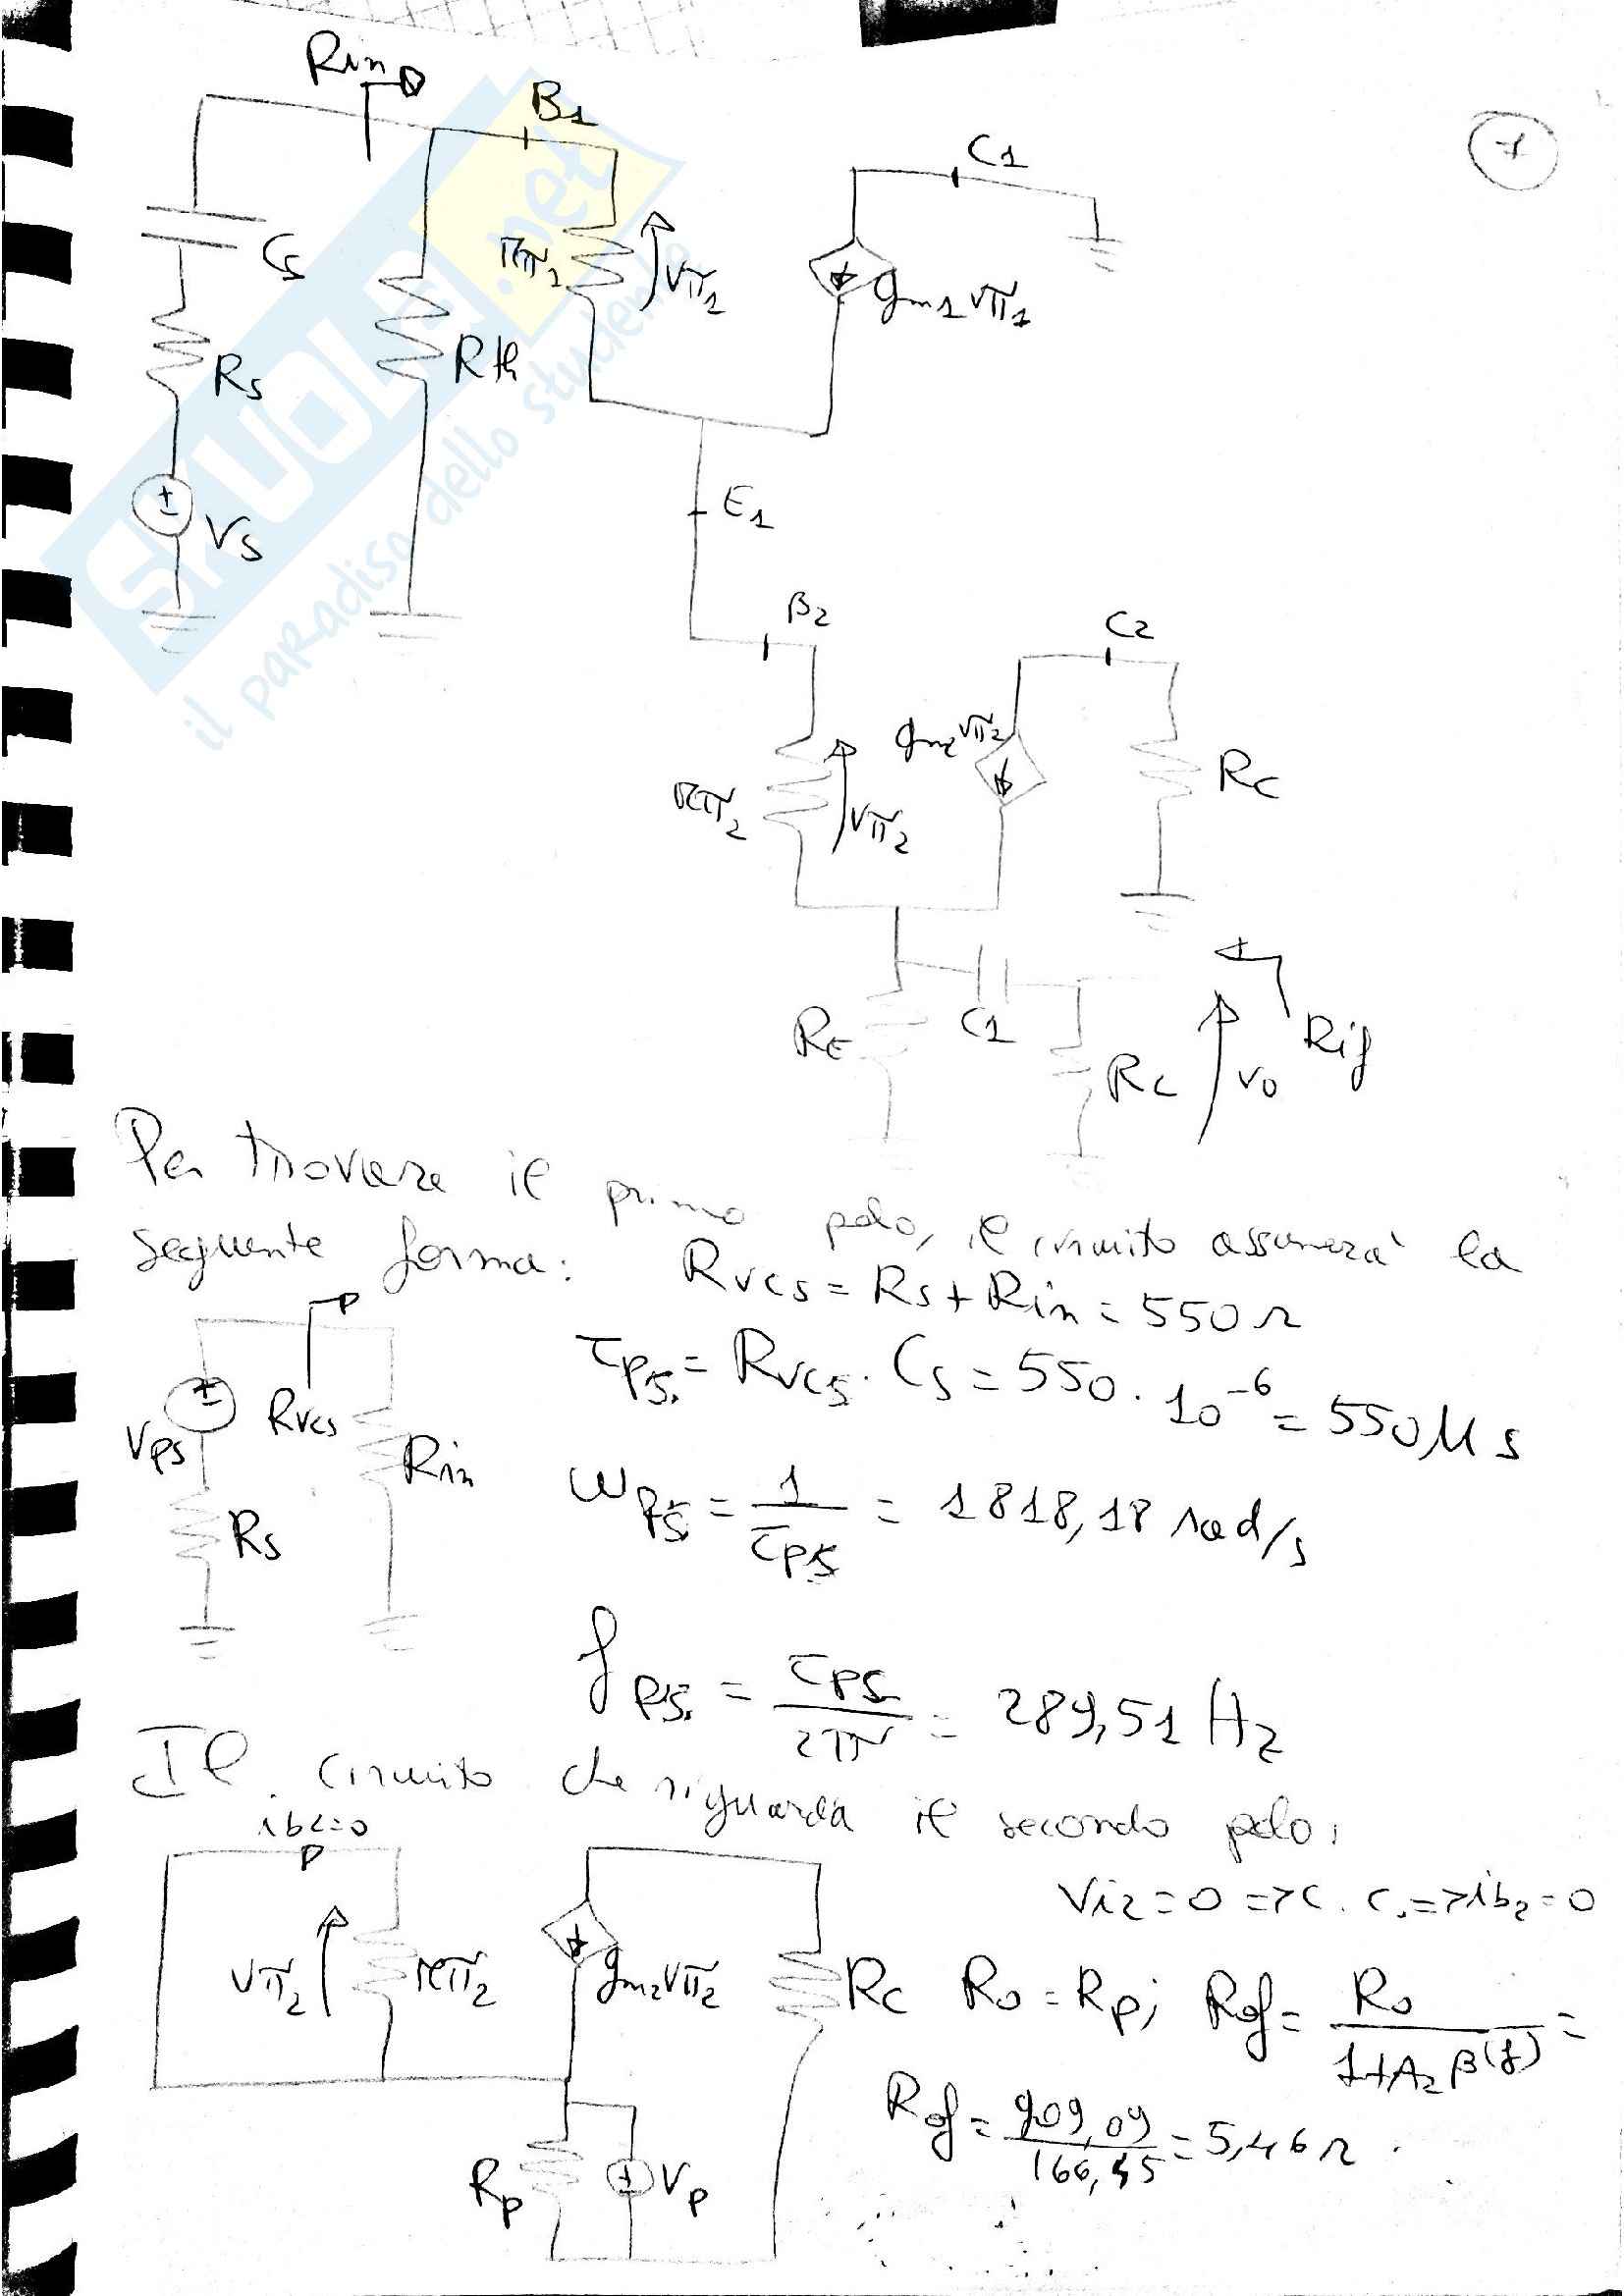 Rin
B1
C1
7
rπ1
vπ1
gm1 vπ1
Cs
Rs
Rth
Vs
E1
B2
C2
gm2 vπ2
rπ2
vπ2
Rc
RE
C1
RL
vo
Rif
SKUOLA.net
il paradiso dello studente
Per trovare il primo polo, il circuito assumerà la
seguente forma: Rvcs = Rs + Rin = 550 Ω
τps = Rvcs · Cs = 550 · 10^-6 = 550 μs
Vps Rvcs Rin
Rs
ωps = 1/τps = 1818,18 rad/s
fps = τps/2π = 289,51 Hz
Il circuito che riguarda il secondo polo,
ib2=0
Vi2 = 0 => C.C. => ib2 = 0
vπ2 rπ2 gm2vπ2 Rc Ro = Rp; Rof = Ro/(1+A2 β(f)) =
Rof = 909,09/166,45 = 5,46 Ω
Rp Vp